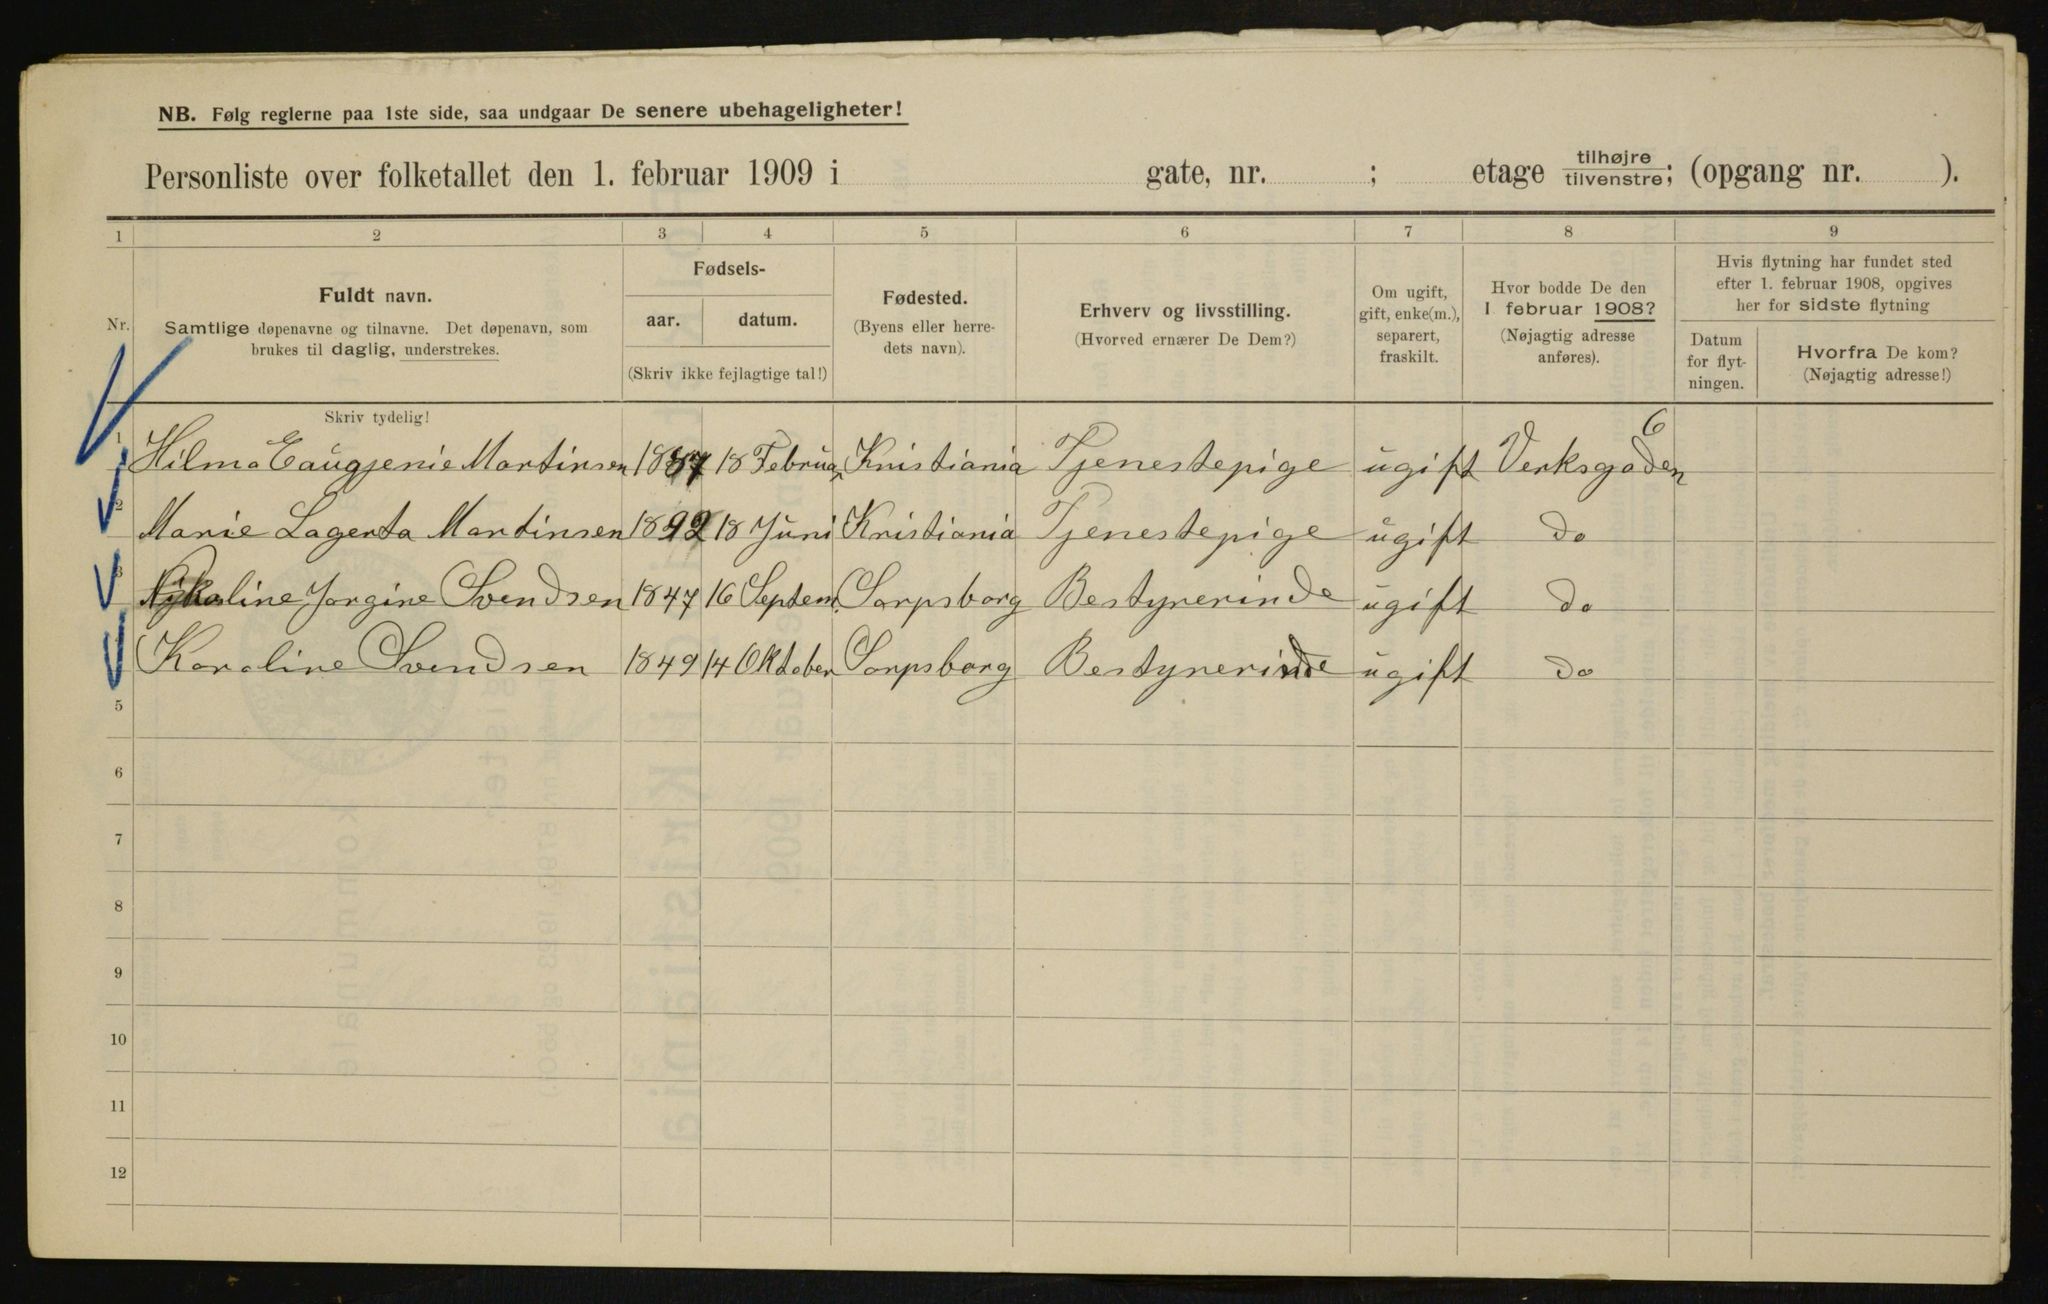 NB. Følg reglerne paa 1ste side, saa undgaar De senere ubehageligheter!
Personliste over folketallet den 1. februar 1909 i gate, nr. ; etage tilhøjre tilvenstre; (opgang nr. ).
1 2 3 4 5 6 7 8 9
Nr.
Fuldt navn.
Samtlige døpenavne og tilnavne. Det døpenavn, som
brukes til daglig, understrekes.
Fødsels-
aar. datum.
(Skriv ikke fejlagtige tal!)
Fødested.
(Byens eller herre-
dets navn).
Erhverv og livsstilling.
(Hvorved ernærer De Dem?)
Om ugift,
gift, enke(m.),
separert,
fraskilt.
Hvor bodde De den
1 februar 1908?
(Nøjagtig adresse
anføres).
Hvis flytning har fundet sted
efter 1. februar 1908, opgives
her for sidste flytning
Datum
for flyt-
ningen.
Hvorfra De kom?
(Nøjagtig adresse!)
Skriv tydelig!
1 Hilma Eaugjenie Martinsen 1887 18 Februar Kristiania Tjenestepige ugift Verksgaden 6
2 Marie Lagerta Martinsen 1892 18 Juni Kristiania Tjenestepige ugift do
3 Nikoline Jorgine Svendsen 1847 16 Septem. Sarpsborg Bestyrerinde ugift do
Karoline Svendsen 1849 14 Oktober Sarpsborg Bestyrerinde ugift do
5
6
7
8
9
10
11
12